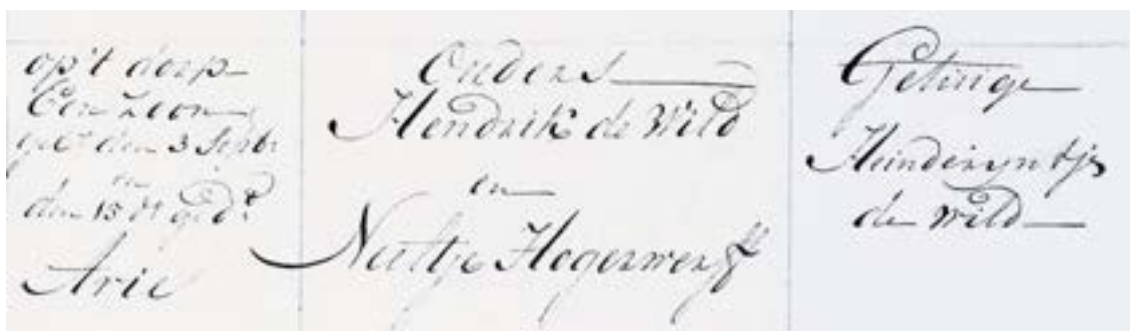 op't dorp
Een Zoon
geb: den 3 Septbr
en
den 15 dt gedt
Arie
Ouders
Hendrik de Wild
en
Neeltje Hogerwerff
Getuige
Heinderyntje
de Wild